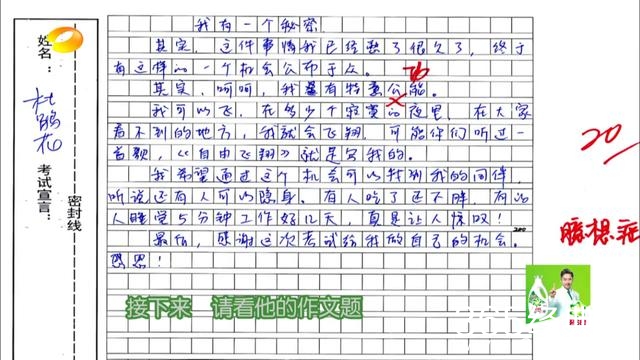 我有一个秘密
其实,这件事情我已经憋了很久了,终于
有这样的一个机会公布于众。
其实,呵呵,我是有特异公能。
功
我可以飞,在多少个寂寞的夜里,在大家
看不到的地方,我就会飞翔,可能你们听过一
首歌,《自由飞翔》就是写我的。
我希望通过这个机会可以找到我的同伴,
听说还有人可以隐身、有人吃了还不胖,有的
人睡觉5分钟工作好几天,真是让人惊叹!
最后,感谢这次考试给我做自己的机会。
恩恩!
200
20
臆想症
姓名:
杜鹃花
考试宣言:
密封线
接下来 请看他的作文题